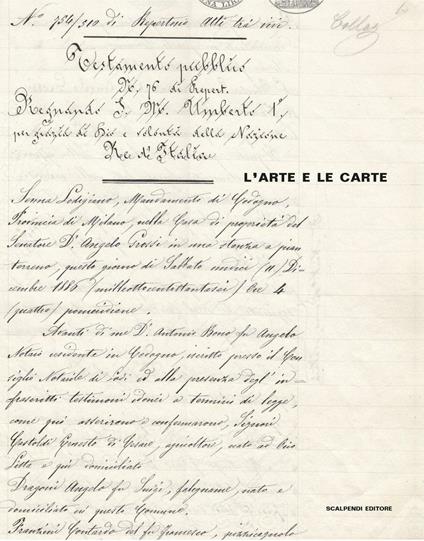 N.° 754/510 di Repertorio Atti tra vivi.
Testamento pubblico
N. 76 di Repert.
Regnando S. M. Umberto I°,
per grazia di Dio e volontà della Nazione
Re d'Italia
L'ARTE E LE CARTE
Senna Lodigiano, Mandamento di Codogno,
Provincia di Milano, nella Casa di proprietà del
Senatore D.r Angelo Grossi in una stanza a pian
terreno, questo giorno di Sabbato undici /11/ Di-
cembre 1886 /milleottocentottantasei/ Ore 4
/quattro/ pomeridiane.
Avanti di me D.r Antonio Bono fu Angelo
Notaio residente in Codogno, iscritto presso il Con-
siglio Notarile di Lodi ed alla presenza degl' in-
frascritti testimoni idonei a termini di legge,
come poi asserirono e confermarono, Signori
Castoldi Ernesto di Cesare, agricoltore, nato ad Orio
Litta e qui domiciliato
Dragoni Angelo fu Luigi, falegname, nato e
domiciliato in questo Comune.
Franzini Contardo del fu Francesco, pizzicagnolo
SCALPENDI EDITORE